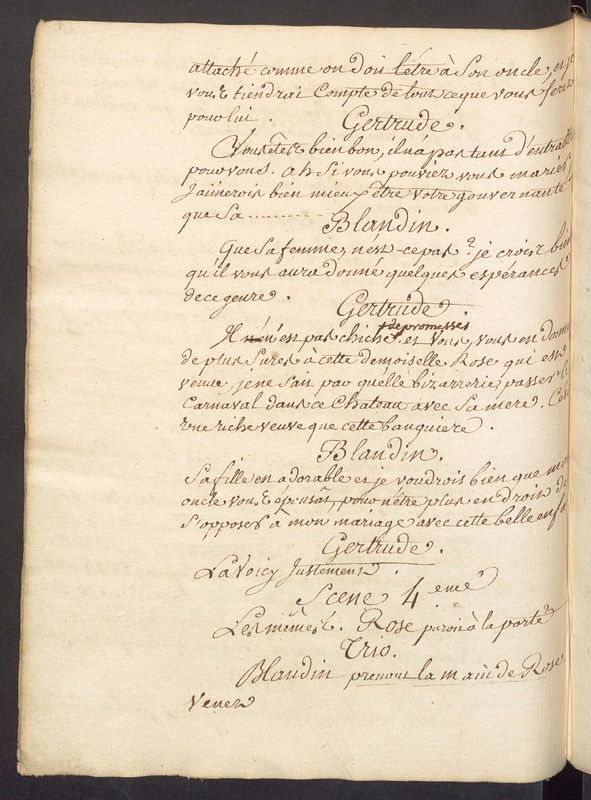 attaché comme on doit l'être à son oncle, et je
vous tiendrai Compte de tout ce que vous ferez
pour lui.
Gertrude.
Vous êtes bien bon, il n'a pas tant d'entrailles
pour vous. ah si vous pouviez vous marier
J'aimerois bien mieux être votre gouvernante
que Sa ..........
Blandin.
Que sa femme, n'est-ce pas? je crois bien
qu'il vous aura donné quelques espérances
de ce genre.
Gertrude.
+ de promesses
Il n'en est pas chiche + et vous, vous en donne
de plus sures à cette demoiselle Rose qui est
venue, je ne sai par quelle bizarrerie, passer le
Carnaval dans ce Chateau avec sa mere. C'est
une riche veuve que cette banquiere.
Blandin.
Sa fille est adorable et je voudrois bien que mon
oncle vous épousât, pour n'être plus en droit de
s'opposer à mon mariage avec cette belle enfa
Gertrude.
La voicy Justement.
Scene 4 eme
Les mêmes. Rose paroit à la porte
Trio.
Blandin prenant la main de Rose.
Venez